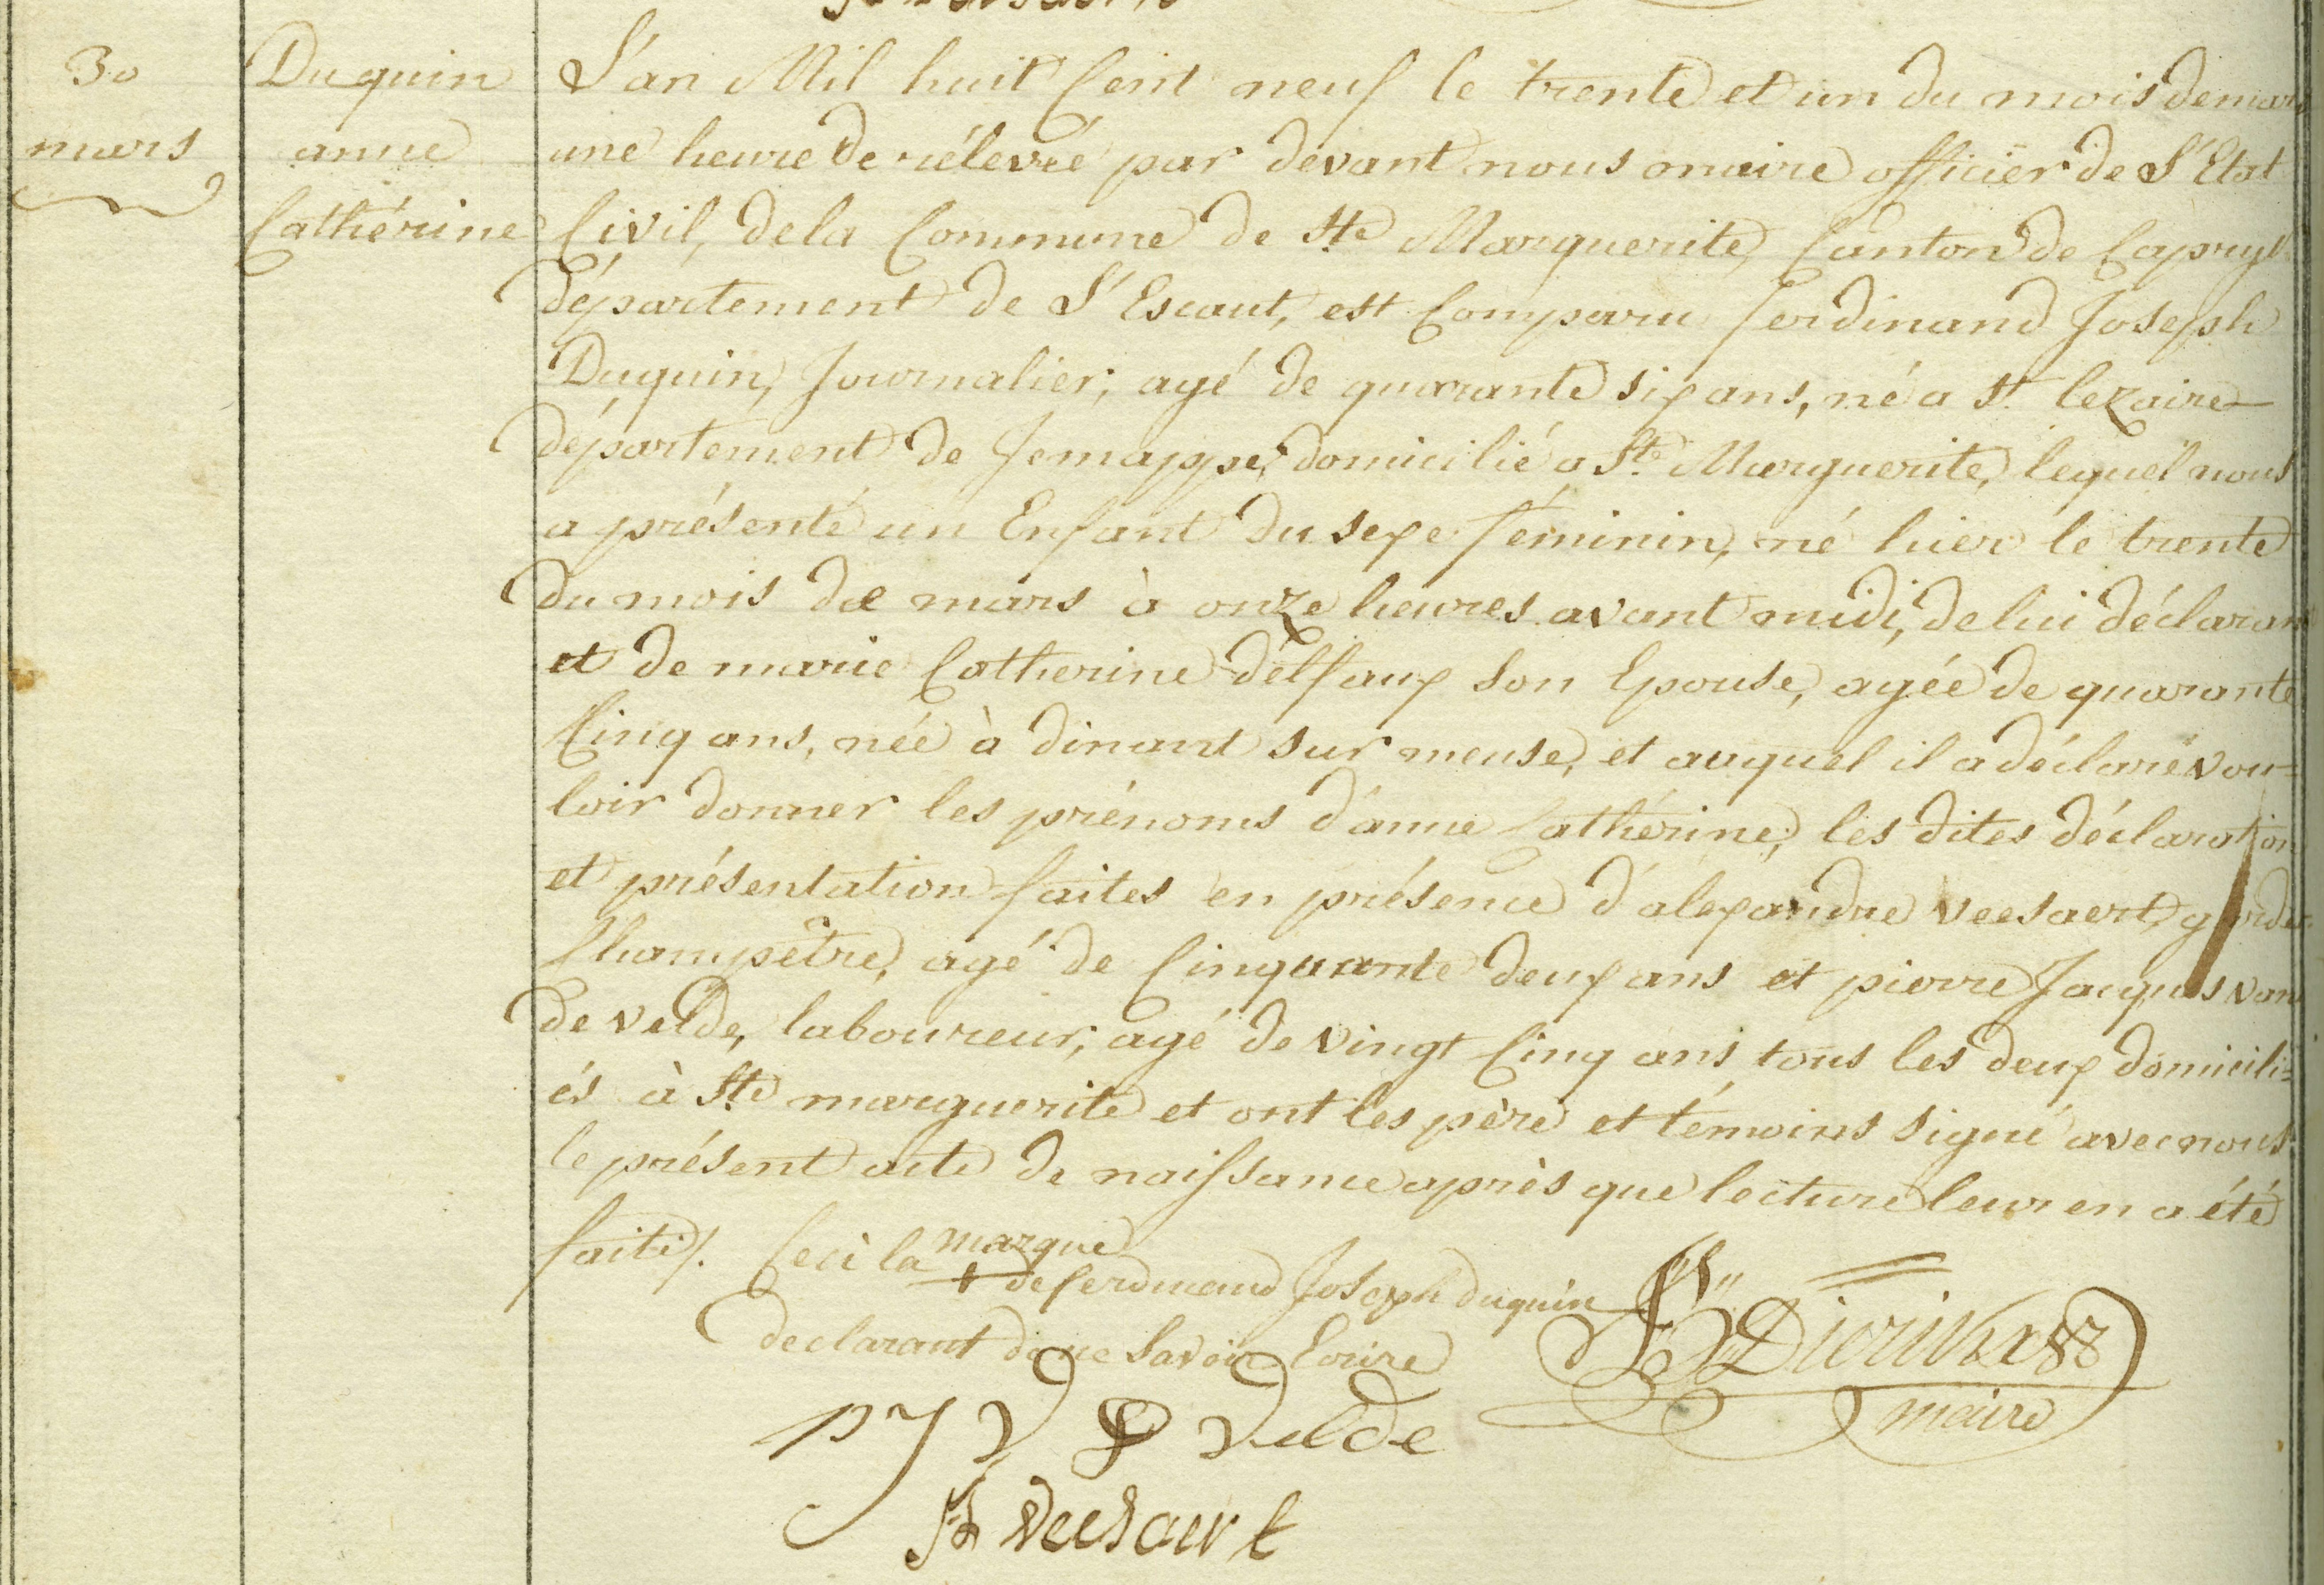 30
mars
Duquin
anne
Cathérine
L'an Mil huit Cent neuf le trente et un du mois de mars
une heure de rélevée par devant nous maire officier de L'Etat
Civil, de la Commune de Ste Marguerite, Canton de Capryk
département de L'Escaut, est Comparu Ferdinand Joseph
Duquin, Journalier; agé de quarante six ans, né a St. lezaire
département de Jemappe, domicilié a Ste Marguerite, lequel nous
a présenté un Enfant du sexe féminin, né hier le trente
du mois de mars à onze heures avant midi, de lui déclarant
et de marie Catherine delfaux son Epouse, agée de quarante
Cinq ans, née à dinant sur meuse, et auquel il a déclaré vou=
loir donner les prénoms d'anne Cathérine, les dites déclaration
et présentation faites en présence d'alexandre veesaert, garde
Champêtre, agé de Cinquante deux ans et pierre Jacques van
de velde, laboureur; agé de vingt Cinq ans tous les deux domicili=
és à Ste marguerite et ont les père et témoins signé avec nous
le présent acte de naissance après que lecture leur en a été
faite/. Ceci la marque
+ de ferdinand Joseph duquin
declarant de ne Savoir Ecrire
maire
P J V D Velde
A Veesaert